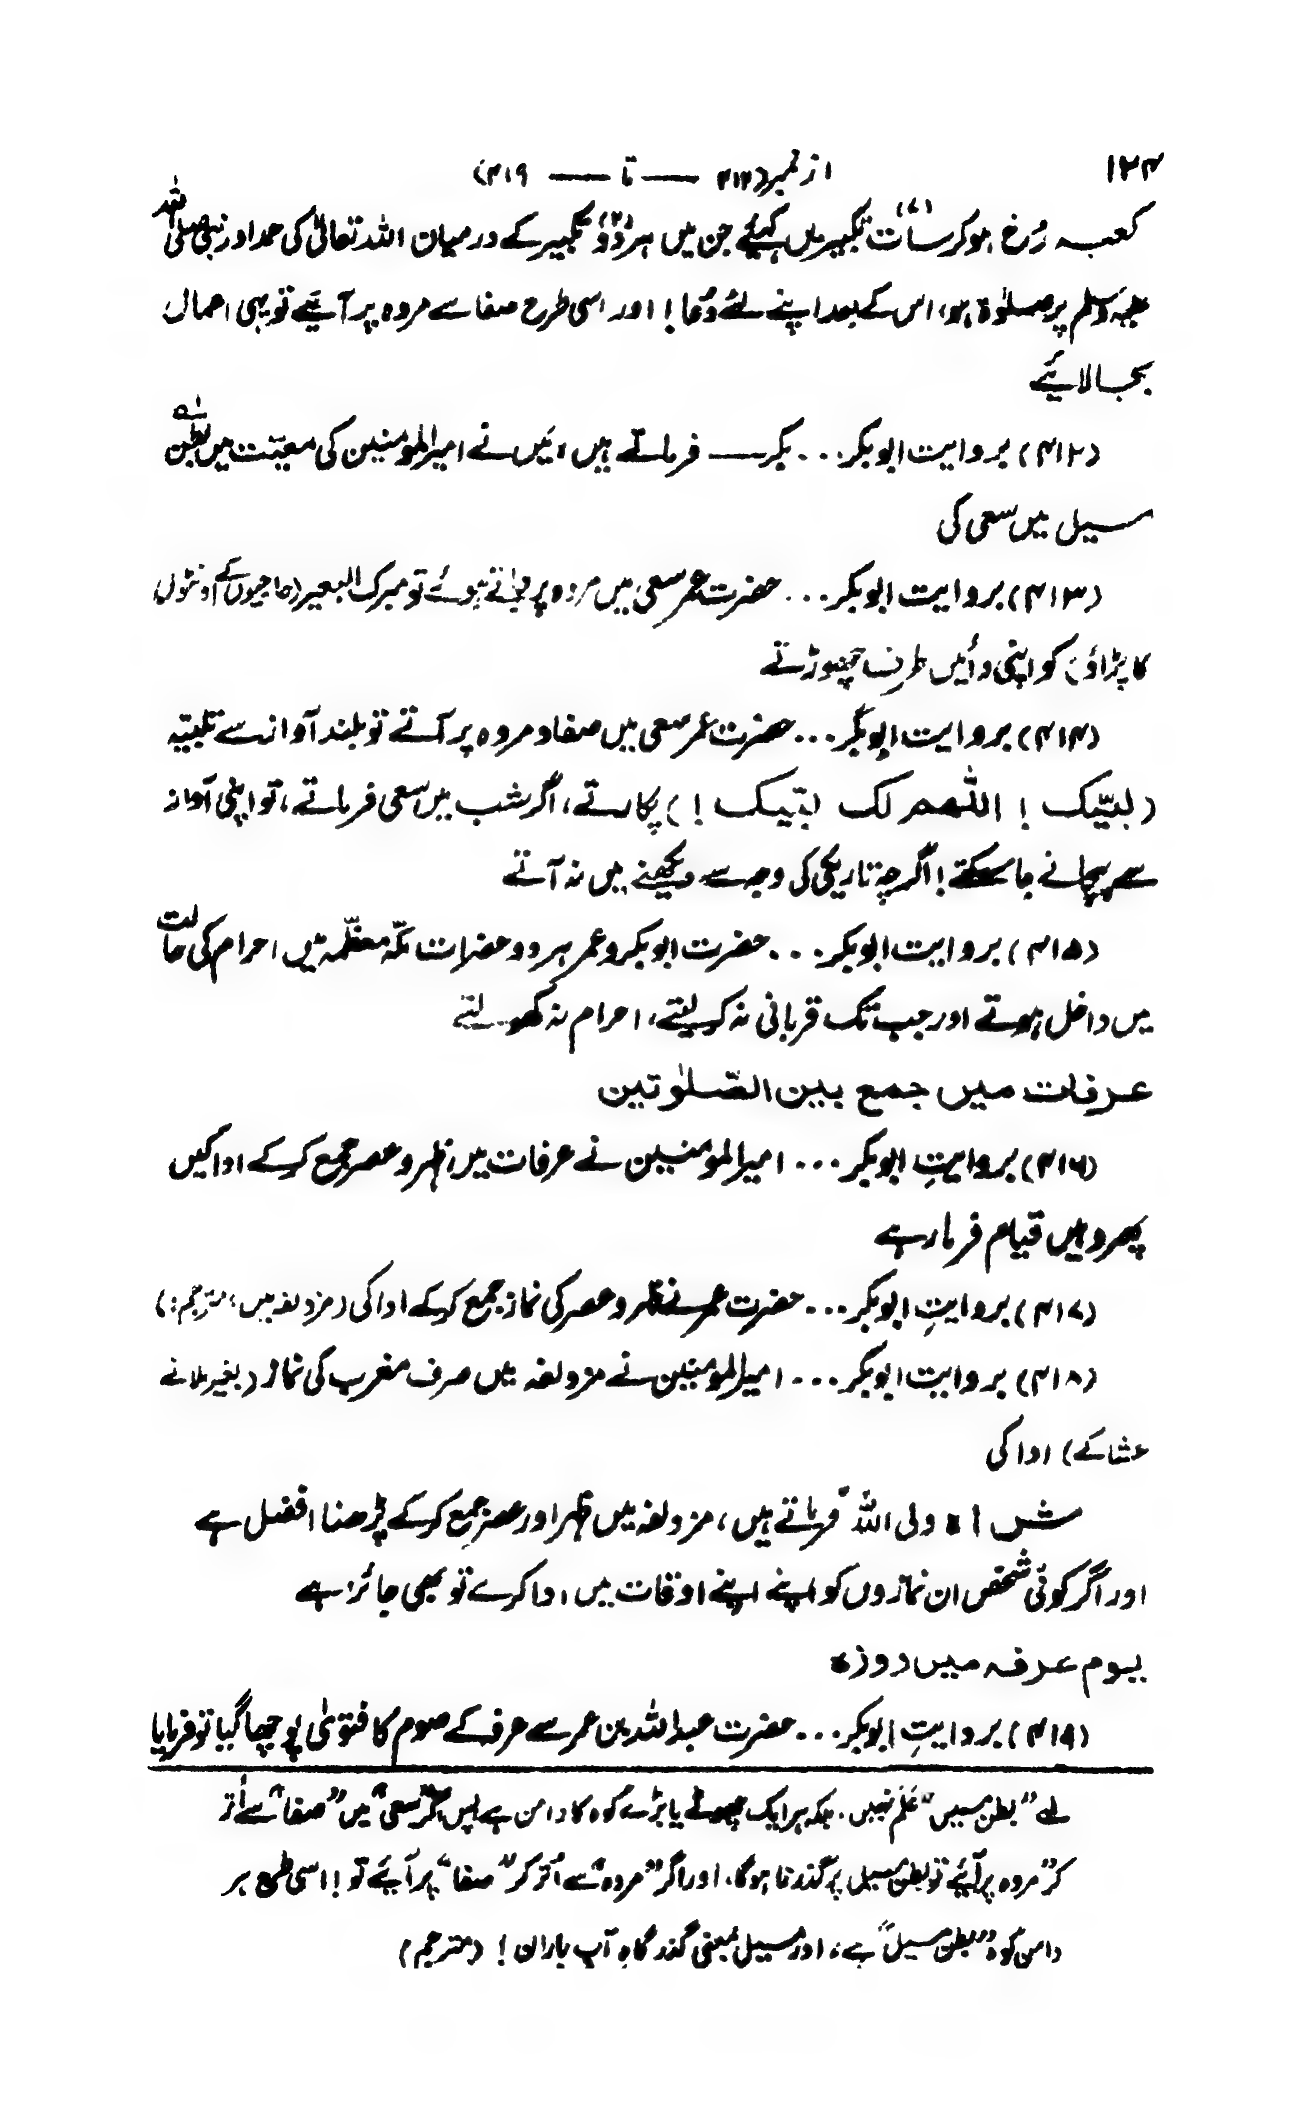 ۱۲۴
از نمبر (۴۱۲ —— تا —— ۴۱۹)
کعبہ رُخ ہو کر سات (۷) تکبیریں کہیئے جن میں ہر دو (۲) تکبیر کے درمیان اللہ تعالیٰ کی حمد اور نبی صلی اللہ
علیہ وسلم پر صلوٰۃ ہو، اس کے بعد اپنے لئے دُعا! اور اسی طرح صفا سے مروہ پر آئیے تو یہی اعمال
بجا لائیے
(۴۱۲) بروایت ابوبکر... بکر —— فرماتے ہیں، میں نے امیرالمومنین کی معیّت میں بطن لہ
مسیل میں سعی کی
(۴۱۳) بروایت ابوبکر... حضرت عمر سعی میں مروہ پر جاتے ہوئے تو مبرک البعیر (حاجیوں کے اونٹوں
کا پڑاؤ) کو اپنی دائیں طرف چھوڑتے
(۴۱۴) بروایت ابوبکر... حضرت عمر سعی میں صفا و مروہ پر آتے تو بلند آواز سے تلبیّہ
(لبیّک! اللّٰھم لک لبّیک!) پکارتے، اگر شب میں سعی فرماتے، تو اپنی آواز
سے پہچانے جا سکتے! اگرچہ تاریکی کی وجہ سے دیکھنے میں نہ آتے
(۴۱۵) بروایت ابوبکر... حضرت ابوبکر و عمر ہر دو حضرات مکّہ معظّمہ میں احرام کی حالت
میں داخل ہوتے اور جب تک قربانی نہ کر لیتے، احرام نہ کھولتے
عرفات میں جمع بین الصّلوٰتین
(۴۱۶) بروایتِ ابوبکر... امیرالمومنین نے عرفات میں ظہر و عصر جمع کر کے ادا کیں
پھر وہیں قیام فرما رہے
(۴۱۷) بروایتِ ابوبکر... حضرت عمر نے ظہر و عصر کی نماز جمع کر کے ادا کی (مزدلفہ میں؛ مترجم:)
(۴۱۸) بروایت ابوبکر... امیرالمومنین نے مزدلفہ میں صرف مغرب کی نماز (بغیر ملانے
عشا کے) ادا کی
ش ا ہ ولی اللہ فرماتے ہیں، مزدلفہ میں ظہر اور عصر جمع کر کے پڑھنا افضل ہے
اور اگر کوئی شخص ان نمازوں کو اپنے اپنے اوقات میں ادا کرے تو بھی جائز ہے
یوم عرفہ میں روزہ
(۴۱۹) بروایتِ ابوبکر... حضرت عبداللہ بن عمر سے عرفہ کے صوم کا فتویٰ پوچھا گیا تو فرمایا
لے "بطن مسیل" عَلَم نہیں، بلکہ ہر ایک چھوٹے یا بڑے کوہ کا دامن ہے پس اگر "سعی" میں "صفا" سے اُتر
کر "مروہ" پر آئیے تو بطن مسیل پر گذرنا ہوگا، اور اگر "مروہ" سے اُتر کر "صفا" پر آیئے تو! اسی طرح ہر
دامن کوہ "بطن مسیل" ہے، اور مسیل بمعنی گذرگاہِ آب باراں! (مترجم)